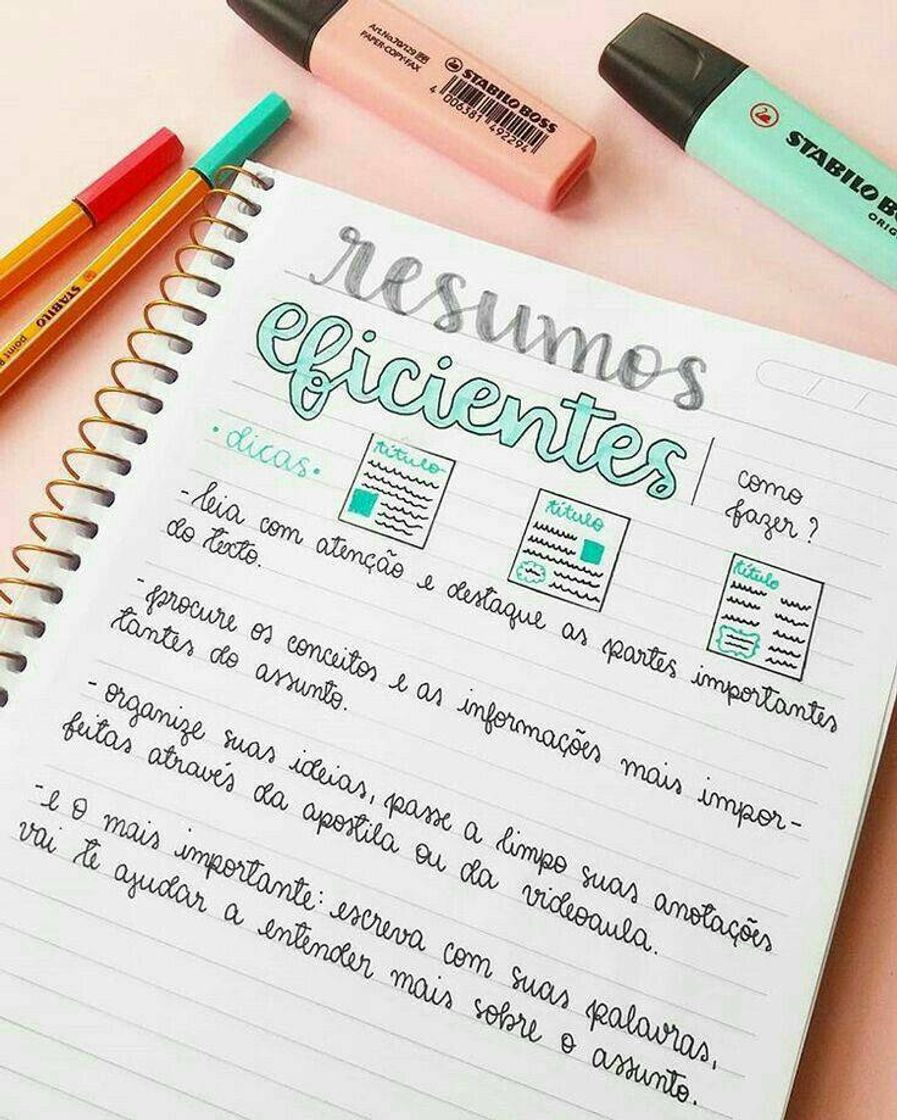 Art.No.70/129
PAPER•COPY•FAX
STABILO BOSS
4 006381 492294
STABILO BO
ORIG
STABILO
point 8
resumos
eficientes
como
fazer?
•dicas•
título
título
título
-leia com atenção e destaque as partes importantes
do texto.
-procure os conceitos e as informações mais impor-
tantes do assunto.
- organize suas ideias, passe a limpo suas anotações
feitas através da apostila ou da videoaula.
-e o mais importante: escreva com suas palavras,
vai te ajudar a entender mais sobre o assunto.